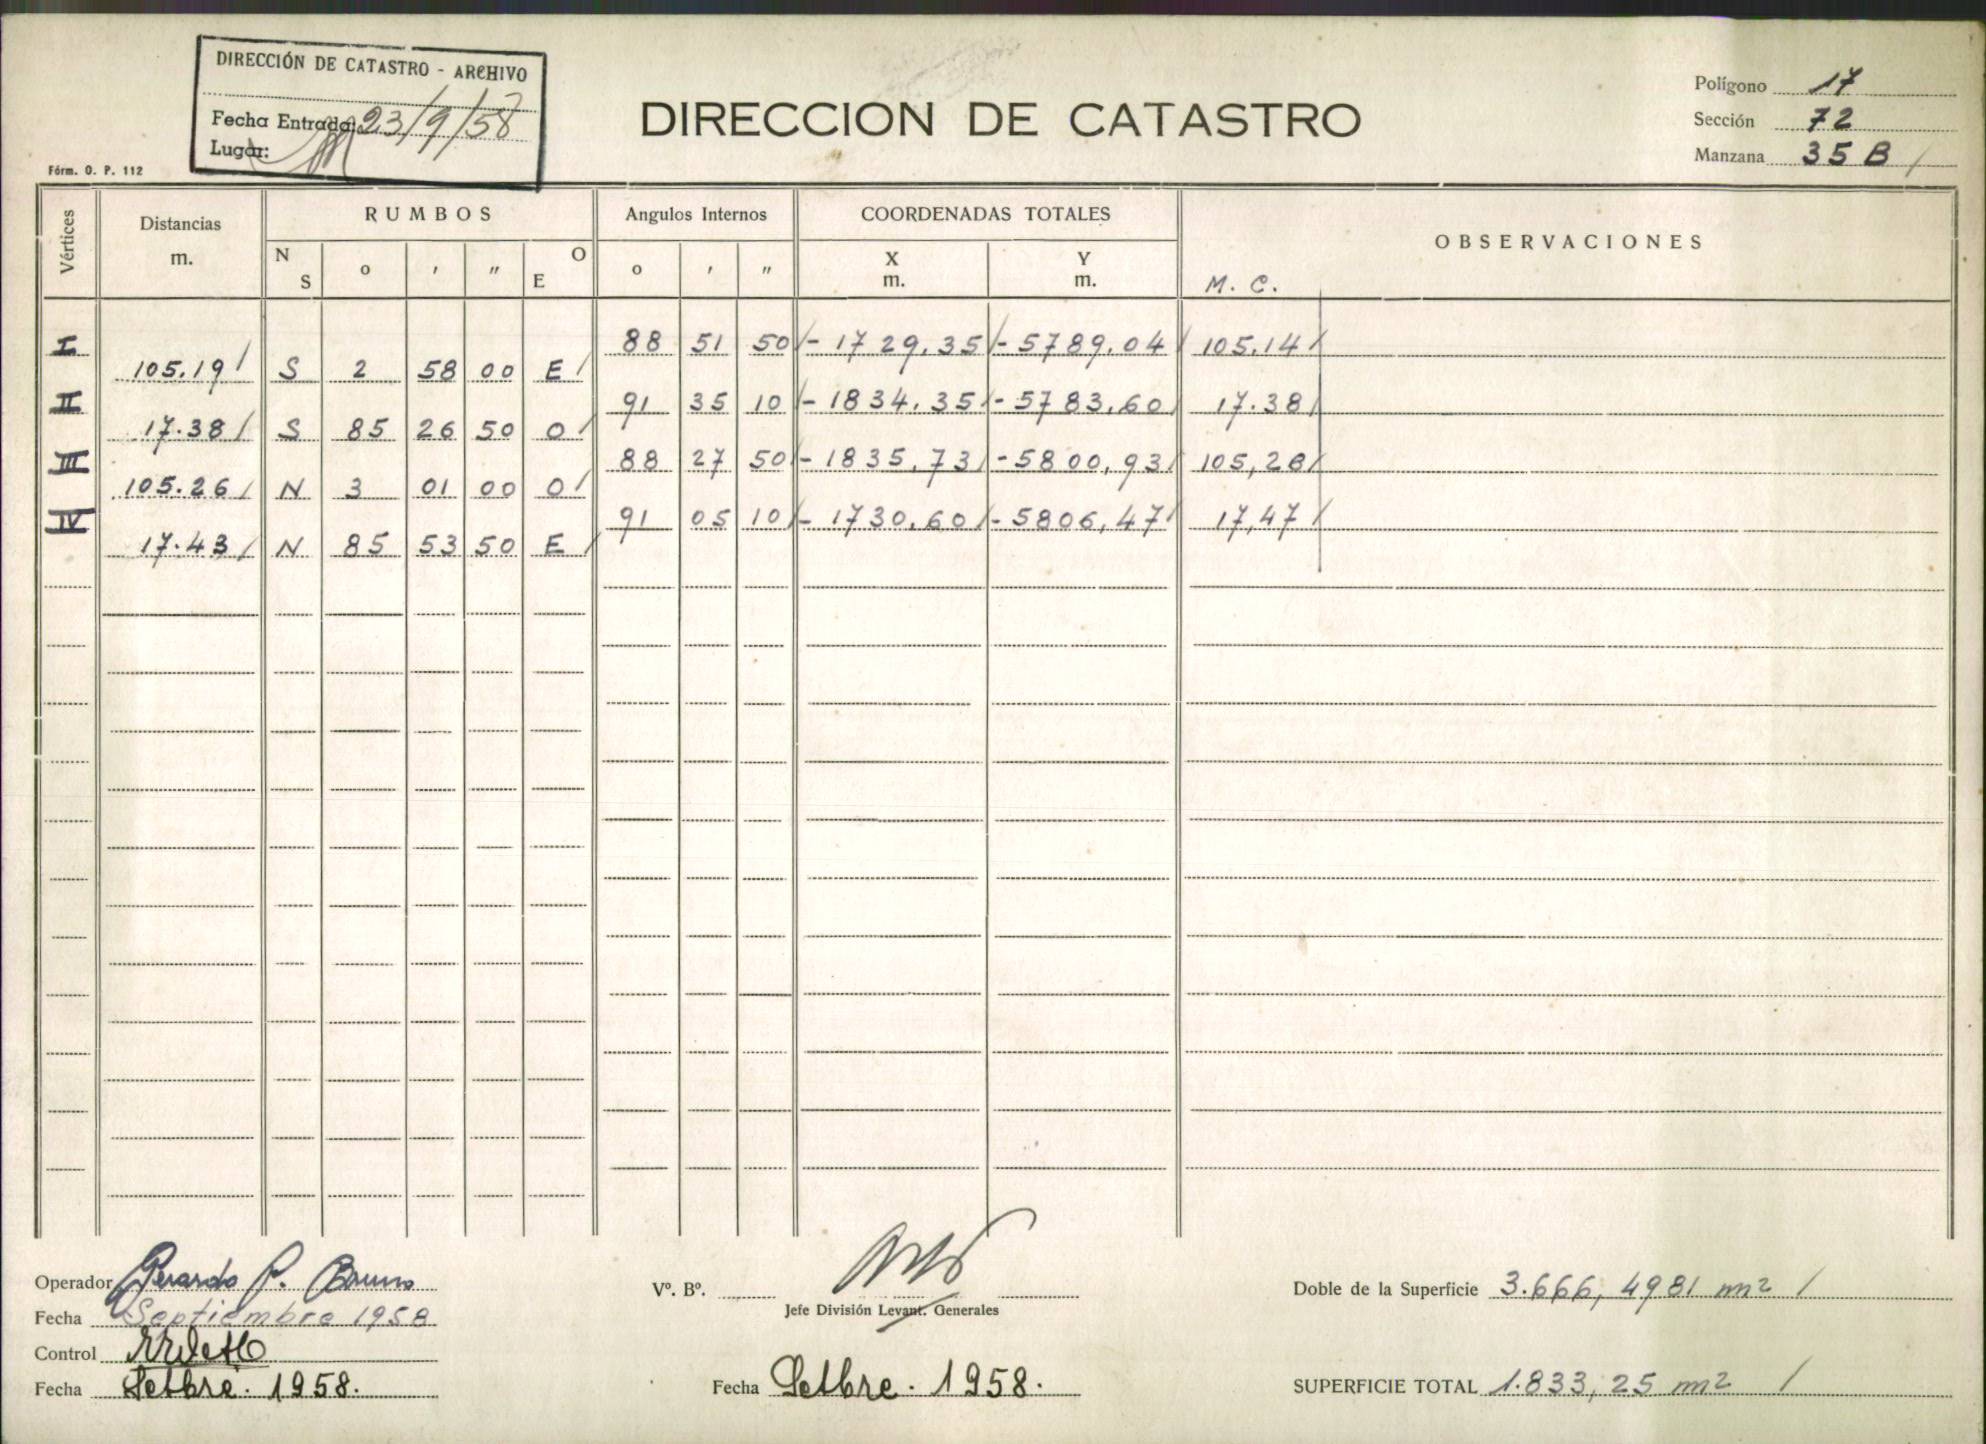 DIRECCIÓN DE CATASTRO - ARCHIVO
Fecha Entrada: 23/9/58
Lugar:
Fórm. O. P. 112
DIRECCION DE CATASTRO
Polígono 17
Sección 72
Manzana 35 B /
Vértices Distancias m. RUMBOS Angulos Internos COORDENADAS TOTALES OBSERVACIONES
N S o ' " O E o ' " X m. Y m. M. C.
I 88 51 50 /- 1729,35 /- 5789,04 / 105.14 /
105.19 / S 2 58 00 E /
II 91 35 10 /- 1834,35 /- 5783,60 / 17.38 /
17.38 / S 85 26 50 O /
III 88 27 50 /- 1835,73 /- 5800,93 / 105,28 /
105.26 / N 3 01 00 O /
IV 91 05 10 /- 1730,60 /- 5806,47 / 17,47 /
17.43 / N 85 53 50 E /
Operador Gerardo P. Bruno
Fecha Septiembre 1958
Control
Fecha Setbre. 1958.
Vº. Bº.
Jefe División Levant. Generales
Fecha Setbre. 1958.
Doble de la Superficie 3.666, 4981 m2 /
SUPERFICIE TOTAL 1.833, 25 m2 /